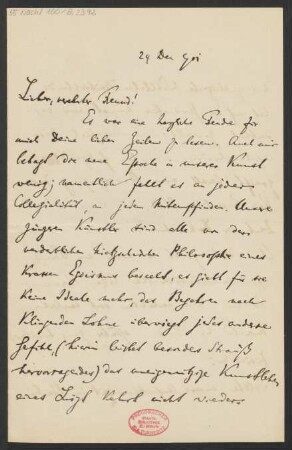 55 Nachl 100/B,2390
29 Dec 901
Lieber, verehrter Freund!
Es war eine herzliche Freude für
mich Deine lieben Zeilen zu lesen. Auch mir
behagt die neue Epoche in unserer Kunst
wenig; namentlich fehlt es an jeder
Collegialität an jedem Mitempfinden. Unsere
jüngeren Künstler sind alle von der
verderblichen Nietzscheschen Philosophie eines
krassen Egoismus beseelt, es giebt für sie
keine Ideale mehr, das Begehren nach
klingendem Lohne überwiegt jedes andere
Gefühl, (hierin leistet besonders Strauß
hervorragendes) das uneigennützige Kunstleben
eines Liszt kehrt nicht wieder.